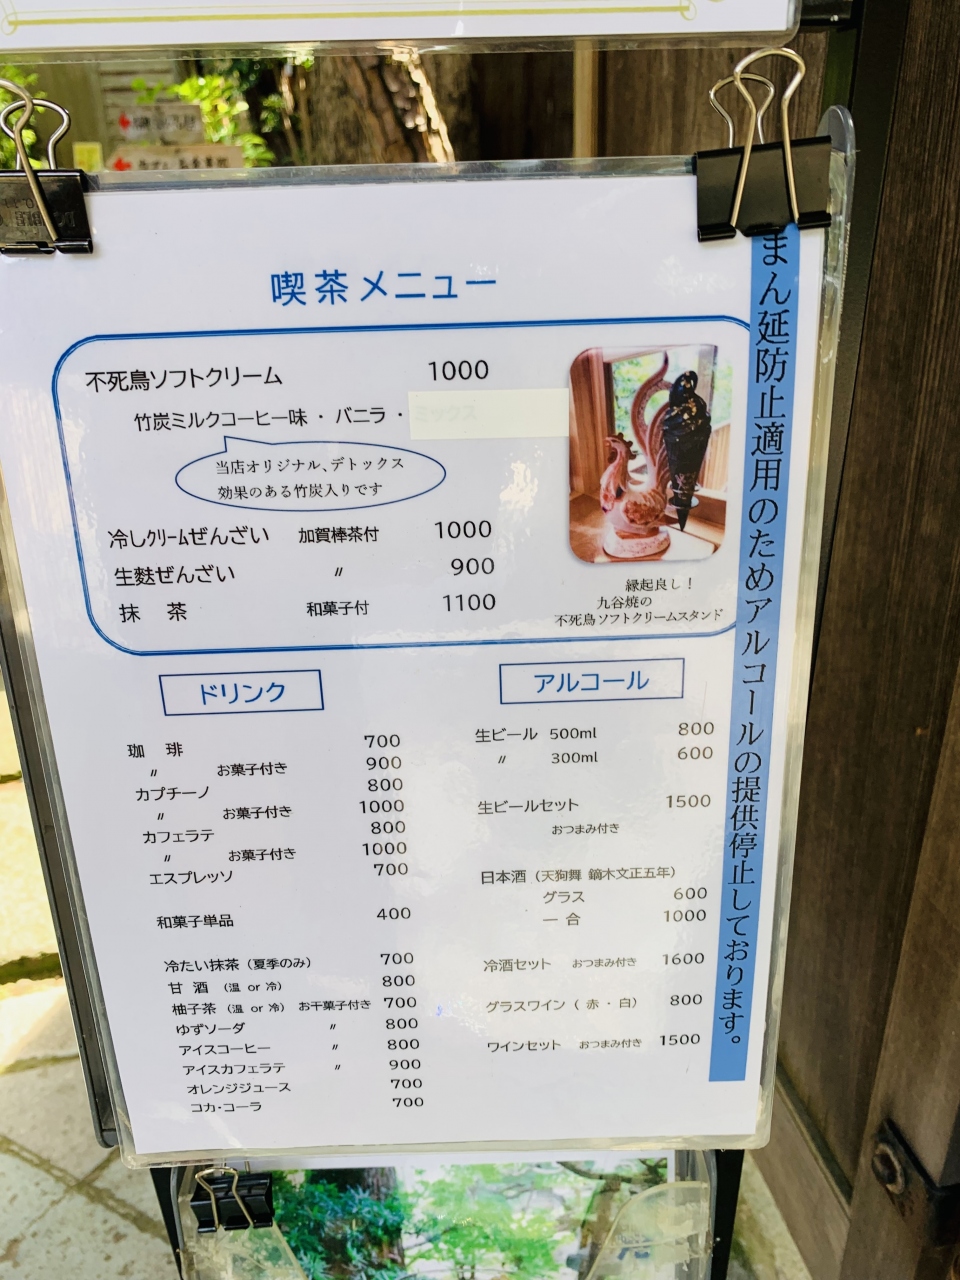 喫茶メニュー
不死鳥ソフトクリーム 1000
竹炭ミルクコーヒー味 ・ バニラ ・ ミックス
当店オリジナル、デトックス
効果のある竹炭入りです
冷しクリームぜんざい 加賀棒茶付 1000
生麩ぜんざい 〃 900
抹 茶 和菓子付 1100
縁起良し!
九谷焼の
不死鳥ソフトクリームスタンド
ドリンク
珈 琲 700
〃 お菓子付き 900
カプチーノ 800
〃 お菓子付き 1000
カフェラテ 800
〃 お菓子付き 1000
エスプレッソ 700
和菓子単品 400
冷たい抹茶(夏季のみ) 700
甘 酒 (温 or 冷) 800
柚子茶 (温 or 冷) お干菓子付き 700
ゆずソーダ 〃 800
アイスコーヒー 〃 800
アイスカフェラテ 〃 900
オレンジジュース 700
コカ・コーラ 700
アルコール
生ビール 500ml 800
〃 300ml 600
生ビールセット 1500
おつまみ付き
日本酒(天狗舞 鏑木文正五年)
グラス 600
一 合 1000
冷酒セット おつまみ付き 1600
グラスワイン( 赤 ・ 白) 800
ワインセット おつまみ付き 1500
まん延防止適用のためアルコールの提供停止しております。